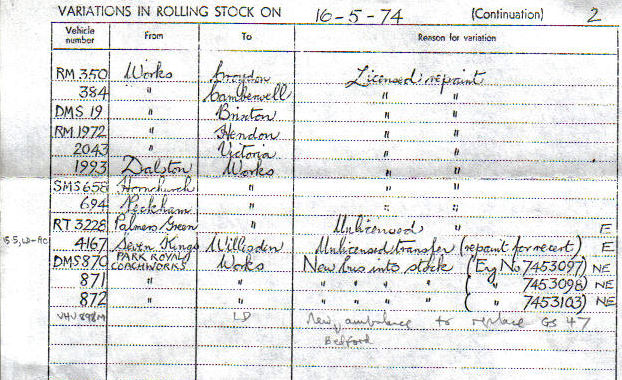 VARIATIONS IN ROLLING STOCK ON 16-5-74 (Continuation) 2
Vehicle number From To Reason for variation
RM 350 Works Croydon Licensed: repaint
384 " Camberwell " "
DMS 19 " Brixton " "
RM 1972 " Hendon " "
2043 " Victoria " "
1993 Dalston Works " "
SMS 658 Hornchurch " " "
694 Peckham " " "
RT 3228 Palmers Green " Unlicensed " E
4167 Seven Kings Willesden Unlicensed transfer (repaint for recert) E
DMS 870 PARK ROYAL COACHWORKS Works New bus into stock (Eng No 7453097) NE
871 " " " " " " ( " 7453098) NE
872 " " " " " " ( " 7453103) NE
VHV 898M LD New ambulance to replace GS 47
Bedford